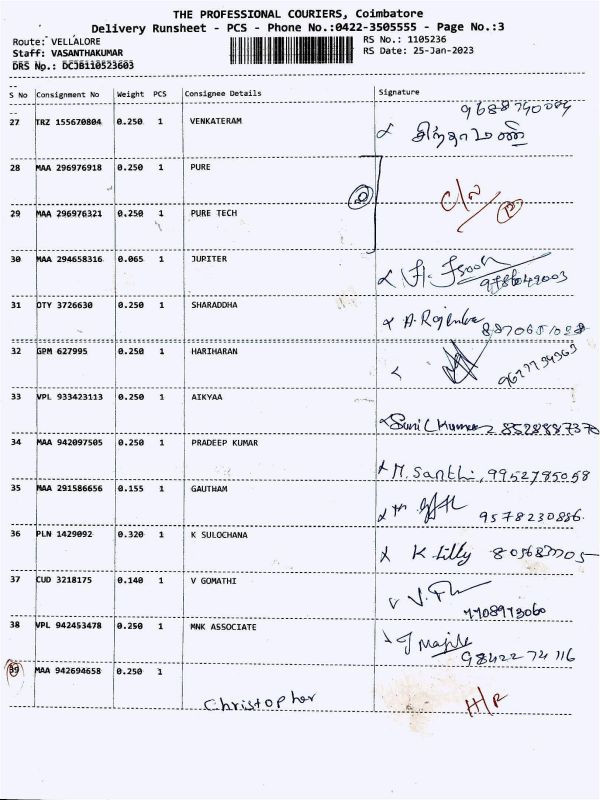 THE PROFESSIONAL COURIERS, Coimbatore
Delivery Runsheet - PCS - Phone No.:0422-3505555 - Page No.:3
Route: VELLALORE
RS No.: 1105236
Staff: VASANTHAKUMAR
RS Date: 25-Jan-2023
DRS No.: DCJB110523603
S No Consignment No Weight PCS Consignee Details Signature
27 TRZ 155670804 0.250 1 VENKATERAM
28 MAA 296976918 0.250 1 PURE
29 MAA 296976321 0.250 1 PURE TECH
30 MAA 294658316 0.065 1 JUPITER
31 OTY 3726630 0.250 1 SHARADDHA
32 GPM 627995 0.250 1 HARIHARAN
9677794363
33 VPL 933423113 0.250 1 AIKYAA
Sunil Kumar 8528887370
34 MAA 942097505 0.250 1 PRADEEP KUMAR
M. Santhi, 9952785058
35 MAA 291586656 0.155 1 GAUTHAM
9578230886
36 PLN 1429092 0.320 1 K SULOCHANA
K Lilly
37 CUD 3218175 0.140 1 V GOMATHI
7708973060
38 VPL 942453478 0.250 1 MNK ASSOCIATE
9842274116
39 MAA 942694658 0.250 1
Christopher